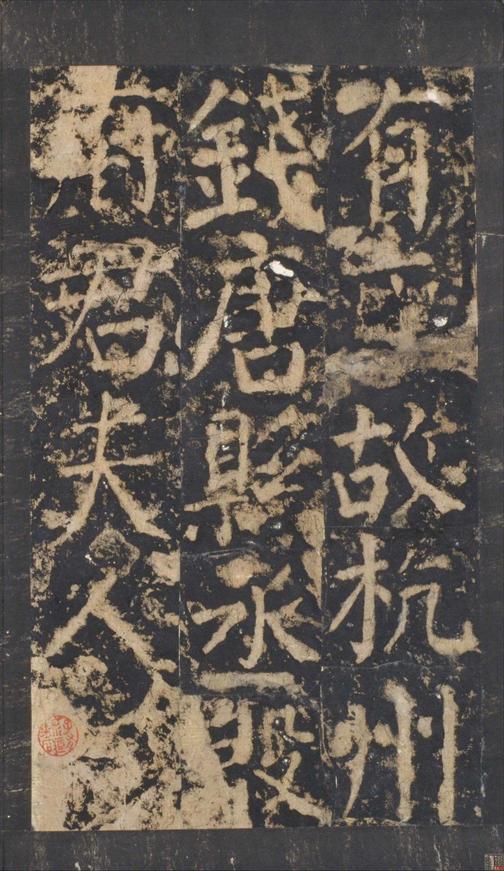 有唐故杭州
錢唐縣丞殷
府君夫人